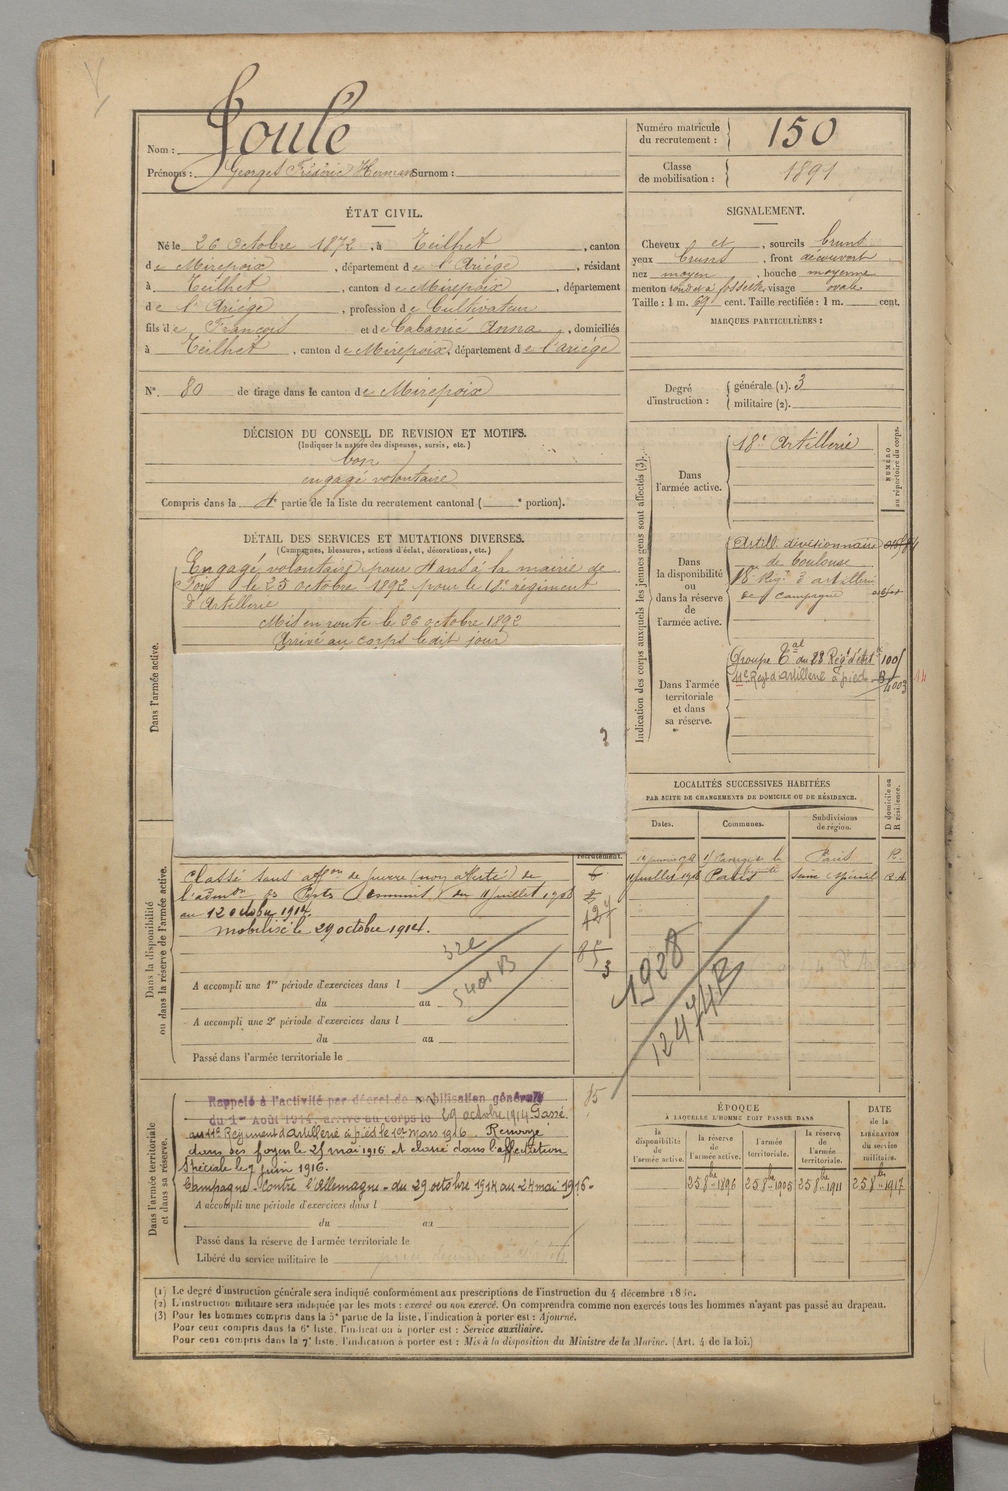 Nom : Soulé
Prénoms : Georges Frédéric Herman Surnom :
Numéro matricule du recrutement : 150
Classe de mobilisation : 1891
ÉTAT CIVIL.
Né le 26 Octobre 1872, à Teilhet, canton
de Mirepoix, département de l'Ariège, résidant
à Teilhet, canton de Mirepoix, département
de l'Ariège, profession de Cultivateur
fils de François et de Cabanié Anna, domiciliés
à Teilhet, canton de Mirepoix, département de l'ariège
N°. 80 de tirage dans le canton de Mirepoix
SIGNALEMENT.
Cheveux et, sourcils bruns
yeux bruns, front découvert
nez moyen, bouche moyenne
menton rond et à fossette, visage ovale
Taille : 1 m. 69 cent. Taille rectifiée : 1 m. cent.
MARQUES PARTICULIÈRES :
Degré d'instruction : générale (1). 3
militaire (2).
DÉCISION DU CONSEIL DE REVISION ET MOTIFS.
(Indiquer la nature des dispenses, sursis, etc.)
bon
engagé volontaire
Compris dans la 4e partie de la liste du recrutement cantonal ( e portion).
DÉTAIL DES SERVICES ET MUTATIONS DIVERSES.
(Campagnes, blessures, actions d'éclat, décorations, etc.)
Dans l'armée active.
Engagé volontaire pour 4 ans à la mairie de
Foix le 25 octobre 1892 pour le 18e régiment
d'Artillerie
Mis en route le 26 octobre 1892
Arrivé au corps le dit jour
Indication des corps auxquels les jeunes gens sont affectés (3).
NUMÉRO au répertoire du corps.
Dans l'armée active.
18e Artillerie
Dans la disponibilité ou dans la réserve de l'armée active.
Artill. divisionnaire
de Toulouse
18e Régt d'artillerie
de campagne
Dans l'armée territoriale et dans sa réserve.
Groupe Tal du 23 Régt d'Art
11e Régt d'Artillerie à pied
LOCALITÉS SUCCESSIVES HABITÉES
PAR SUITE DE CHANGEMENTS DE DOMICILE OU DE RÉSIDENCE.
Dates. Communes. Subdivisions de région. D domicile ou R résidence.
Paris R.
Paris
Dans la disponibilité ou dans la réserve de l'armée active.
recrutement.
Classé sans affon de guerre (non affecté) de
du 11 juillet 1906
au 12 octobre 1914.
mobilisé le 29 octobre 1914.
322
5401 B
1928
A accompli une 1re période d'exercices dans l
du au
A accompli une 2e période d'exercices dans l
du au
Passé dans l'armée territoriale le
Dans l'armée territoriale et dans sa réserve.
Rappelé à l'activité par décret de mobilisation générale
du 1er Août 1914, arrivé au corps le 29 octobre 1914 Passé
au 11e Régiment d'artillerie à pied le 1er mars 1916. Renvoyé
dans ses foyers le 25 mai 1916 et classé dans l'affectation
Spéciale le 7 juin 1916.
Campagne contre l'Allemagne - du 29 octobre 1914 au 24 mai 1916 -
A accompli une période d'exercices dans l
du au
Passé dans la réserve de l'armée territoriale le
Libéré du service militaire le
ÉPOQUE
À LAQUELLE L'HOMME DOIT PASSER DANS
la disponibilité de l'armée active. la réserve de l'armée active. l'armée territoriale. la réserve de l'armée territoriale.
DATE de la LIBÉRATION du service militaire.
25 8bre 1896 25 8bre 1905 25 8bre 1911 25 8bre 1917
(1) Le degré d'instruction générale sera indiqué conformément aux prescriptions de l'instruction du 4 décembre 1889.
(2) L'instruction militaire sera indiquée par les mots : exercé ou non exercé. On comprendra comme non exercés tous les hommes n'ayant pas passé au drapeau.
(3) Pour les hommes compris dans la 5e partie de la liste, l'indication à porter est : Ajourné.
Pour ceux compris dans la 6e liste, l'indication à porter est : Service auxiliaire.
Pour ceux compris dans la 7e liste, l'indication à porter est : Mis à la disposition du Ministre de la Marine. (Art. 4 de la loi.)